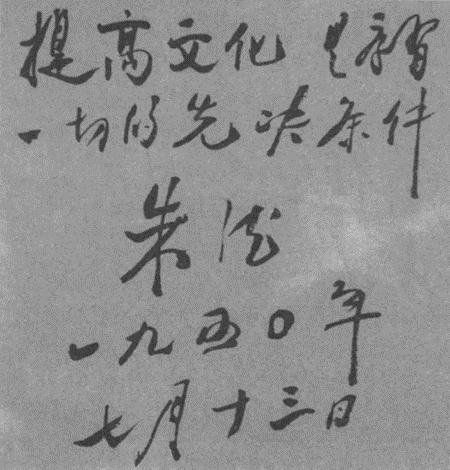 提高文化是学習
一切的先决条件
朱德
一九五〇年
七月十三日